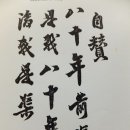 自贊
八十年前渠
是我八十年
後我是渠